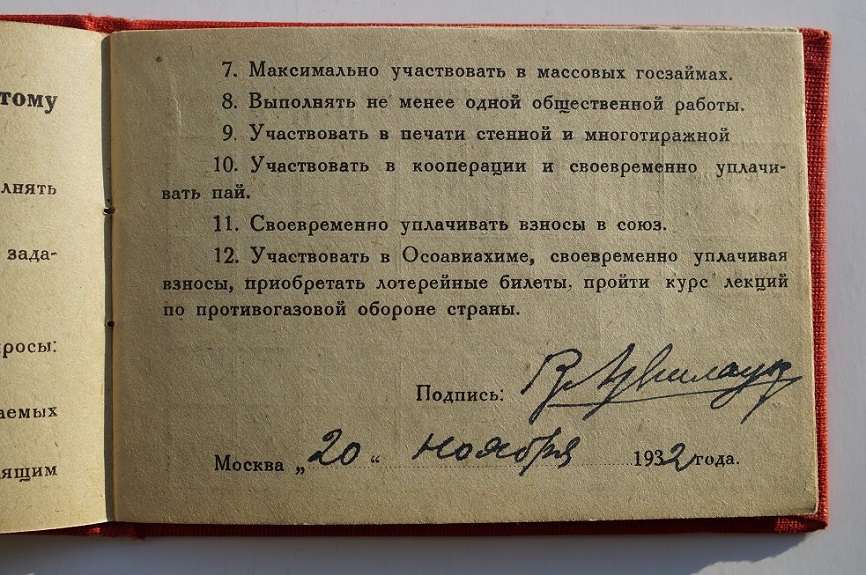 тому
лнять
зада-
росы:
аемых
ящим
7. Максимально участвовать в массовых госзаймах.
8. Выполнять не менее одной общественной работы.
9. Участвовать в печати стенной и многотиражной
10. Участвовать в кооперации и своевременно уплачи-
вать пай.
11. Своевременно уплачивать взносы в союз.
12. Участвовать в Осоавиахиме, своевременно уплачивая
взносы, приобретать лотерейные билеты, пройти курс лекций
по противогазовой обороне страны.
Подпись:
Москва „20“ ноября 1932 года.